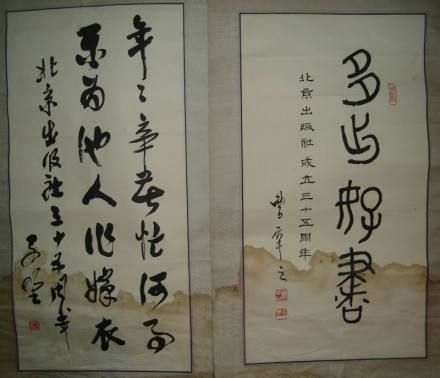 多出好書
北京出版社成立三十五周年
曹辛之
年〻辛苦忙何事
乐为他人作嫁衣
北京出版社三十五周年